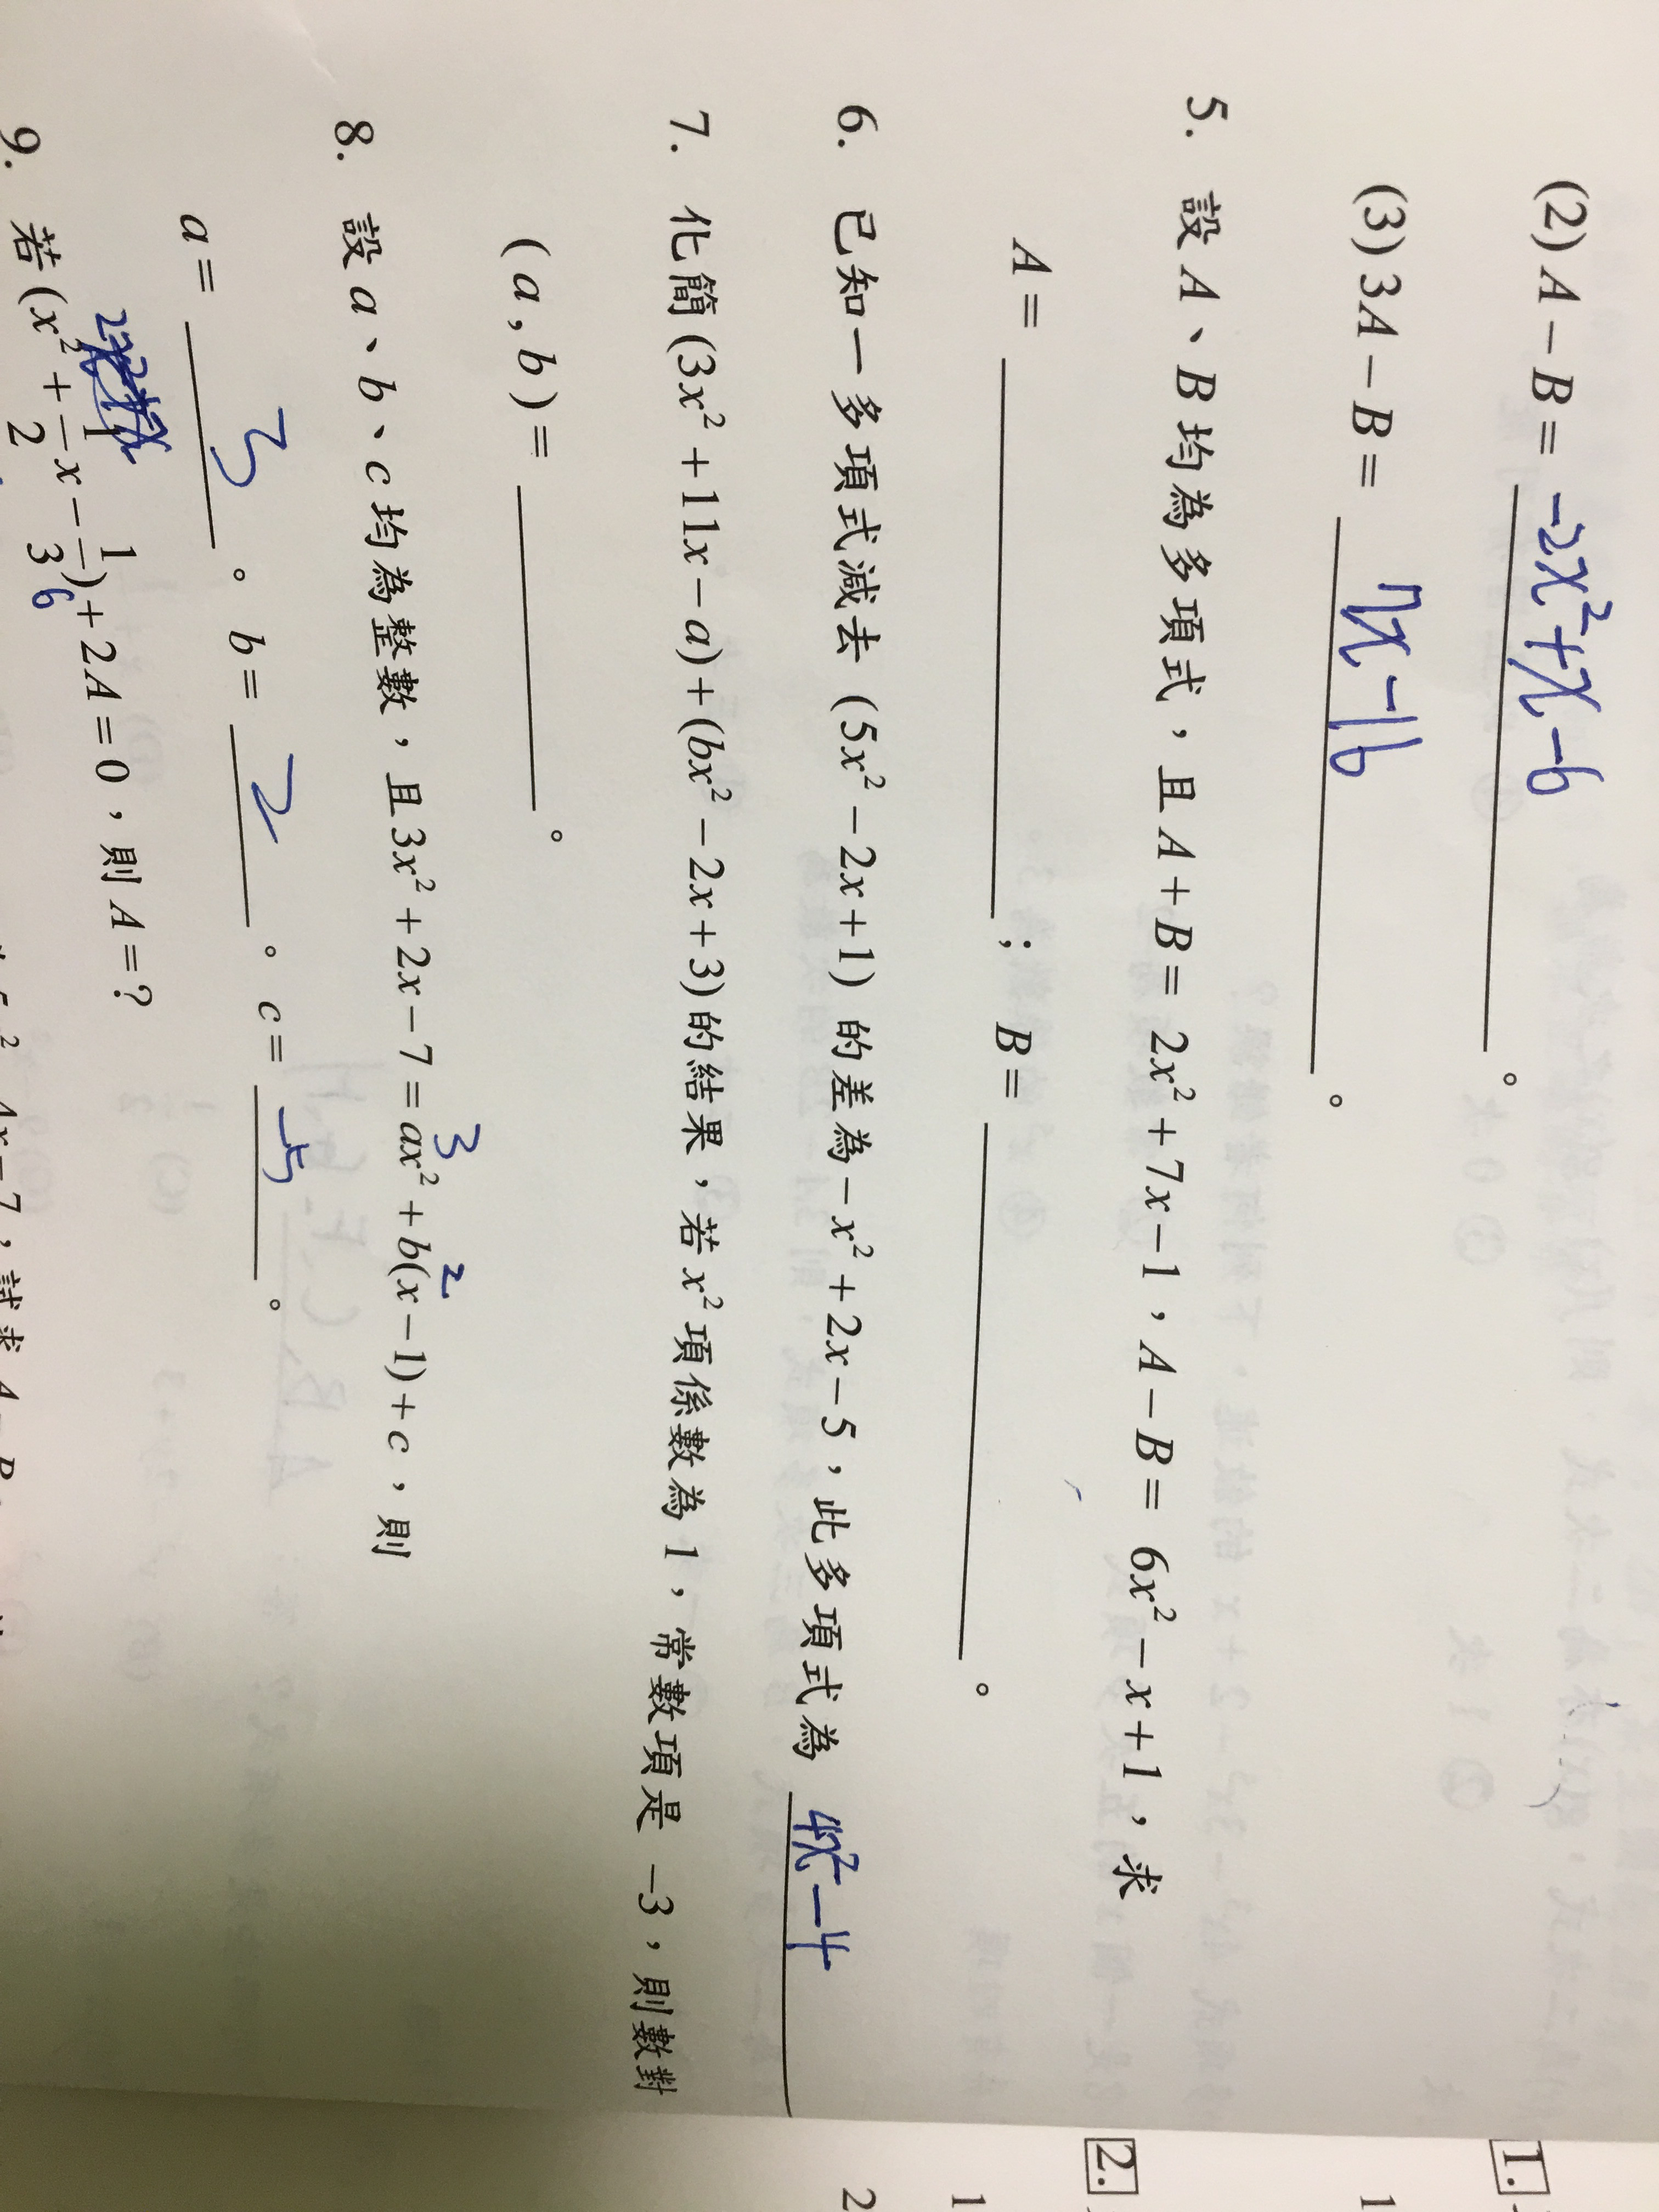 (2) A－B＝ -2x²+x-6 。
(3) 3A－B＝ 7x-16 。
5. 設 A、B 均為多項式，且 A＋B＝ 2x²＋7x－1，A－B＝ 6x²－x＋1，求
A＝ ；B＝ 。
6. 已知一多項式減去 (5x²－2x＋1) 的差為－x²＋2x－5，此多項式為 4x²-4
7. 化簡 (3x²＋11x－a)＋(bx²－2x＋3) 的結果，若 x² 項係數為 1，常數項是 －3，則數對
(a , b)＝ 。
3 2
8. 設 a、b、c 均為整數，且 3x²＋2x－7＝ax²＋b(x－1)＋c，則
a＝ 3 。b＝ 2 。c＝ -5 。
9. 若 (x²＋1/2x－1/3)＋2A＝0，則 A＝?
6
4x－7，試求 A－B
1.
1
2.
1
2